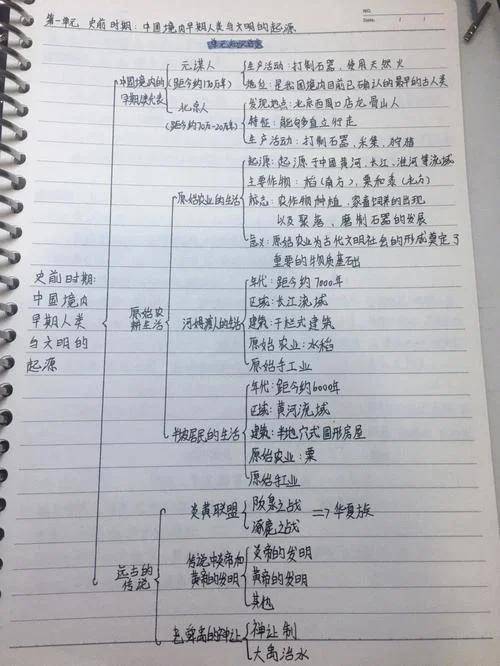 NO.
DATE / /
第一单元 史前时期:中国境内早期人类与文明的起源
单元知识
元谋人
(距今约170万年)
生产活动:打制石器,使用天然火
地位:是我国境内目前已确认的最早的古人类
中国境内的
早期人类代表
北京人
(距今约70万-20万年)
发现地点:北京西南周口店龙骨山人
特征:能够直立行走
生产活动:打制石器,采集,狩猎
原始农业的生活
起源:起源于中国黄河,长江,淮河等流域
主要作物:稻(南方),粟和黍(北方)
标志:农作物种植,家畜饲养的出现
以及聚落,磨制石器的发展
意义:原始农业为古代文明社会的形成奠定了
重要的物质基础
史前时期:
中国境内
早期人类
与文明的
起源
原始农
耕生活
河姆渡人的生活
年代:距今约7000年
区域:长江流域
建筑:干栏式建筑
原始农业:水稻
原始手工业
半坡居民的生活
年代:距今约6000年
区域:黄河流域
建筑:半地穴式圆形房屋
原始农业:粟
原始手工业
远古的
传说
炎黄联盟
阪泉之战
涿鹿之战
=> 华夏族
传说中炎帝和
黄帝的发明
炎帝的发明
黄帝的发明
其他
尧舜禹的禅让
禅让制
大禹治水